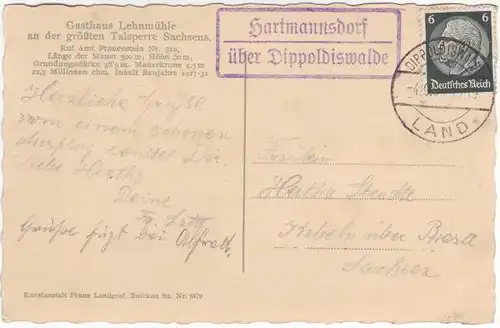 Gasthaus Lehnmühle
an der größten Talsperre Sachsens,
Ruf Amt Frauenstein Nr. 310,
Länge der Mauer 500 m, Höhe 60 m,
Grundungsstärke 38.5 m, Mauerkrone 4.5 m
22,5 Millionen cbm. Inhalt Baujahre 1927-31
Hartmannsdorf
über Dippoldiswalde
6 6
Deutsches Reich
LAND
Herzliche Grüße
von einem schönen
sendet Dir
liebe Hertha
Deine
Grüße fügt bei Alfred.
Fräulein
Hertha
über Riesa
Sachsen
Kunstanstalt Franz Landgraf, Zwickau Sa. Nr. 8479